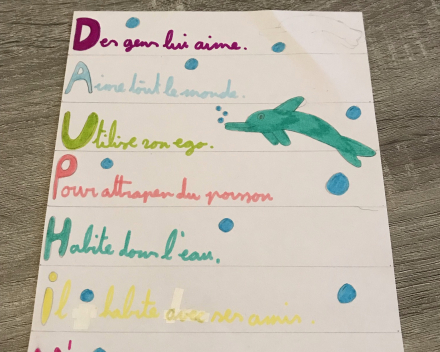 Des gens lui aime.
Aime tout le monde.
Utilise son ego.
Pour attraper du poisson
Habite dans l'eau.
il habite avec ses amis.